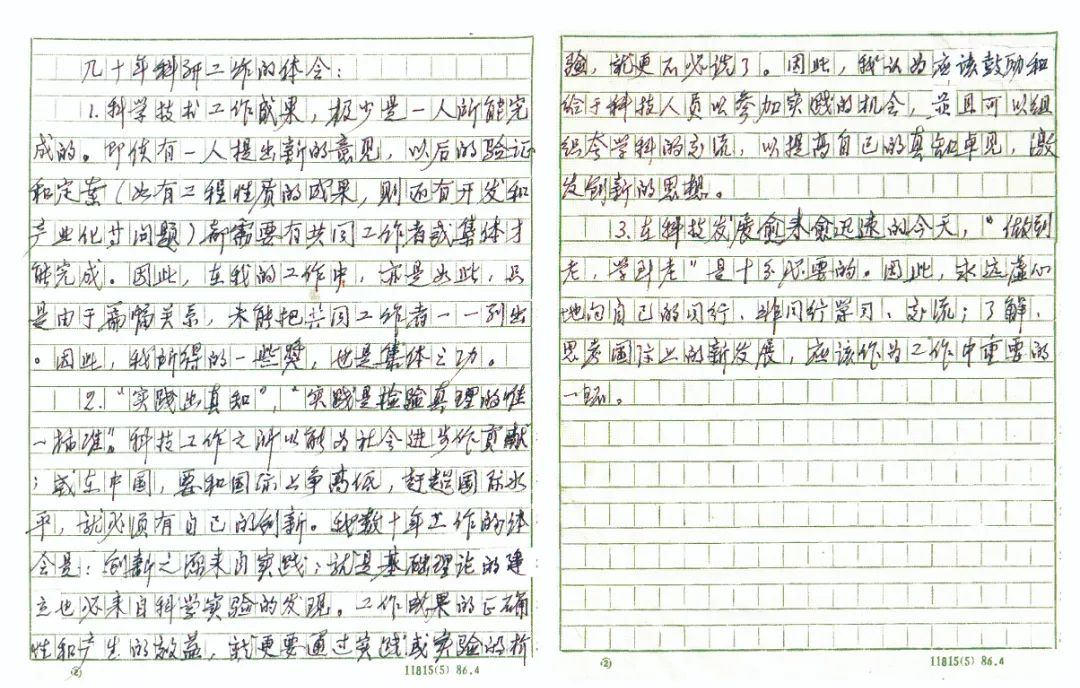 几十年科研工作的体会：
1.科学技术工作成果，极少是一人所能完
成的。即使有一人提出新的意见，以后的验证
和定案（如有工程性质的成果，则还有开发和
产业化等问题）都需要有共同工作者或集体才
能完成。因此，在我的工作中，亦是如此，只
是由于篇幅关系，未能把共同工作者一一列出
。因此，我所得的一些奖，也是集体之功。
2.“实践出真知”，“实践是检验真理的唯
一标准”。科技工作之所以能为社会进步作贡献
；或在中国，要和国际上争高低，赶超国际水
平，就必须有自己的创新。我数十年工作的体
会是：创新之源来自实践；就是基础理论的建
立也必来自科学实验的发现。工作成果的正确
性和产生的效益，就更要通过实践或实验的检
② 11815(5) 86.4
验，就更不必说了。因此，我认为应该鼓励和
给于科技人员以参加实践的机会，并且可以组
织夸学科的交流，以提高自己的真知卓见，激
发创新的思想。
3.在科技发展愈来愈迅速的今天，“做到
老，学到老”是十分必要的。因此，永远虚心
地向自己的同行、非同行学习、交流；了解、
思考国际上的新发展，应该作为工作中重要的
一环。
② 11815(5) 86.4